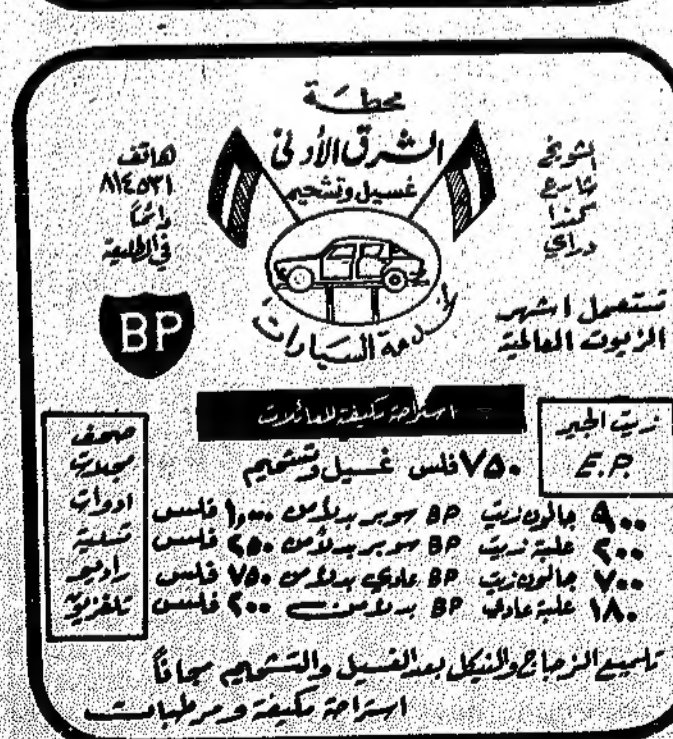 محطة
الشرق الأدنى
غسيل وتشحيم
لخدمة السيارات
الشويخ
شارع
كندا
دراي
هاتف
٨١٤٥٣١
دائماً
في الطليعة
تستعمل اشهر
الزيوت العالمية
BP
استراحة مكيفة للعائلات
زيت الجير
E.P.
٧٥٠ فلس غسيل وتشحيم
٩٠٠ جالون زيت BP سوبر بدلاً من ١,٠٠٠ فلس
٢٠٠ علبة زيت BP سوبر بدلاً من ٢٥٠ فلس
٧٠٠ جالون زيت BP عادي بدلاً من ٧٥٠ فلس
١٨٠ علبة عادي BP بدلاً من ٢٠٠ فلس
صحف
مجلات
ادوات
تسلية
راديو
تلفزيون
تلميع الزجاج والنيكل بعد الغسيل والتشحيم مجاناً
استراحة مكيفة ومرطبات